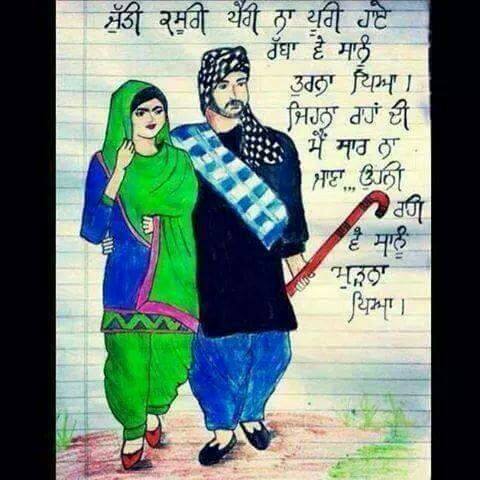 ਜੁੱਤੀ ਕਸੂਰੀ ਪੈਰੀ ਨਾ ਪੂਰੀ ਹਾਏ
ਰੱਬਾ ਵੇ ਸਾਨੂੰ
ਤੁਰਨਾ ਪਿਆ।
ਜਿਹਨਾ ਰਾਹਾਂ ਦੀ
ਮੈਂ ਸਾਰ ਨਾ
ਜਾਣਾ... ਉਹਨੀ
ਰਾਹੀ
ਵੇ ਸਾਨੂੰ
ਮੁੜਨਾ
ਪਿਆ।